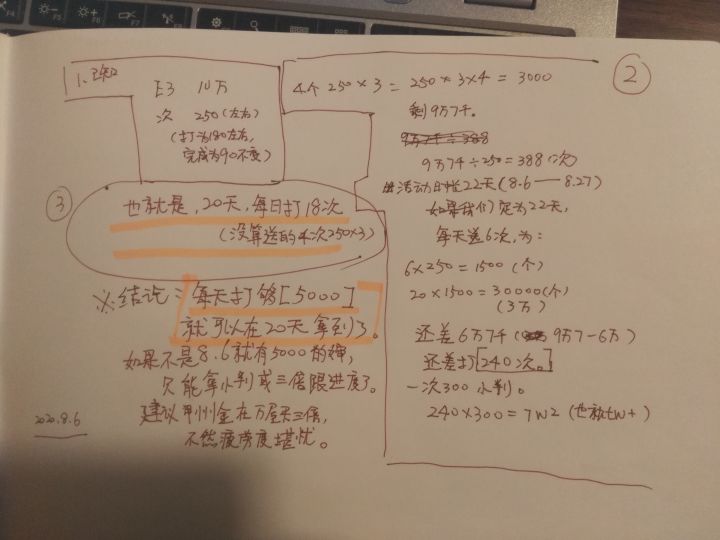 1、已知
E3 10万
次 250(左右)
(打为180左右,
完成为90不变)
②
4个 250×3 = 250×3×4 = 3000
剩9万7千。
9万7千÷388
9万7千÷250=388(次)
活动时长22天(8.6——8.27)
如果我们定为22天,
每天送6次,为:
6×250=1500(个)
20×1500=30000(个)
(3万)
还差6万7千(9万7-6万)
还差打[240次。]
一次300小判。
240×300=7W2(也就7W+)
③
也就是,20天,每日打18次
(没算送的4次250×3)
※结论:每天打够[5000]
就可以在20天拿到了。
如果不是8.6就有5000的婶,
只能拿小判或三倍跟进度了。
建议甲州金在万屋买三倍,
不然疲劳度堪忧。
2020.8.6